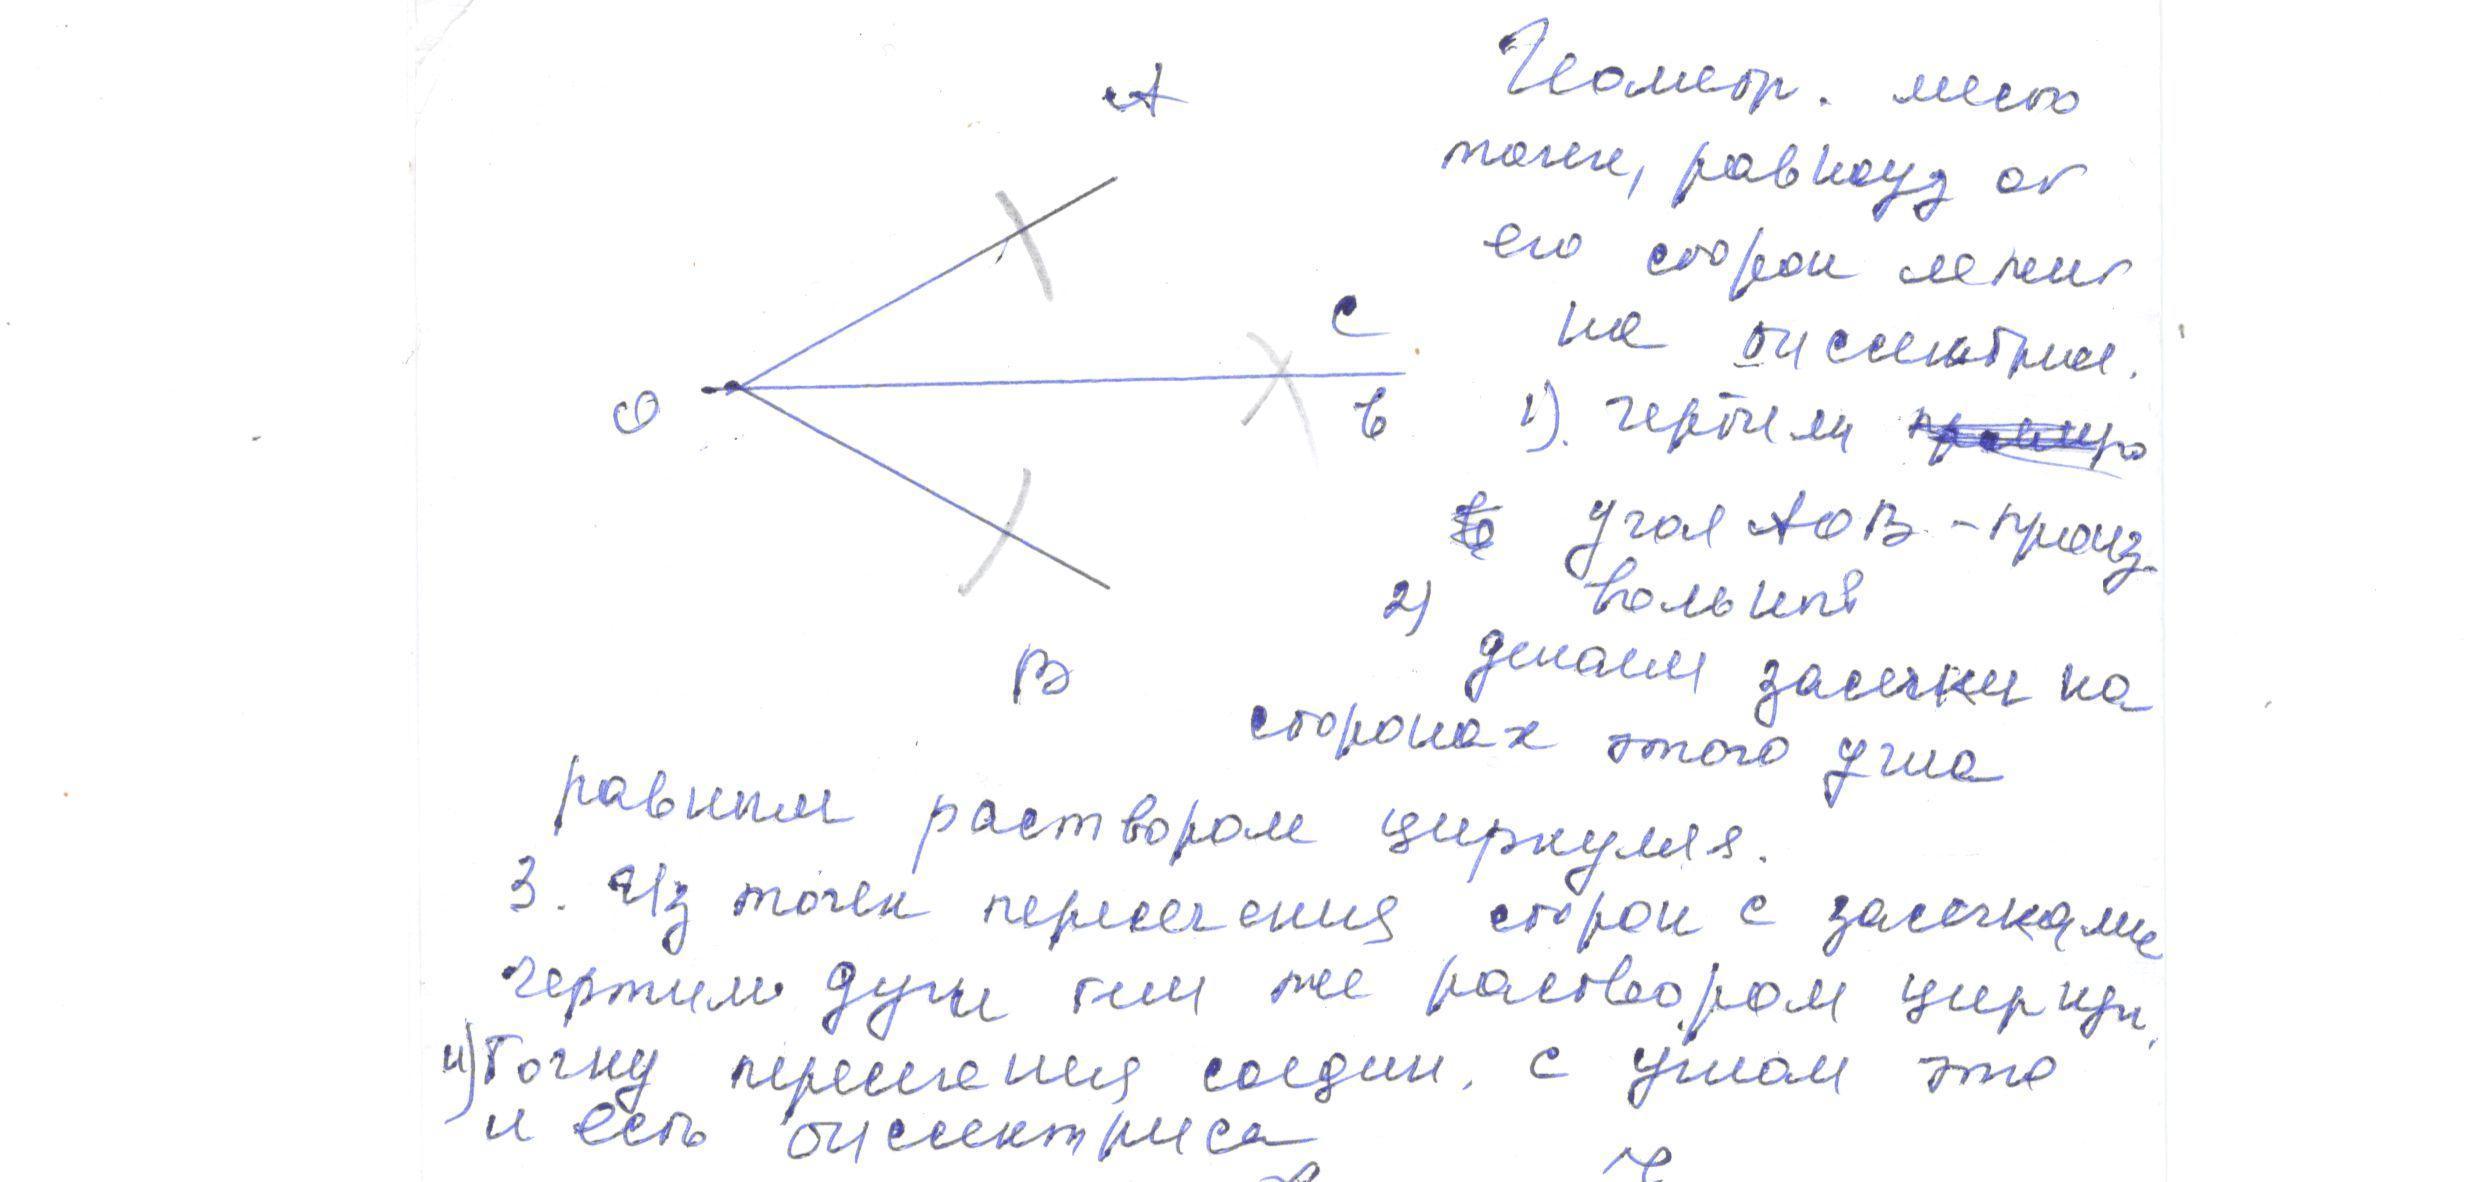 А
Геометр. место
точек, равноуд от
его сторон лежит
С
на биссектрисе.
О
в
1). Чертим
угол АОВ - произ
вольный
2)
делаем засечки на
В
сторонах этого угла
равным раствором циркуля.
3. Из точек пересечения сторон с засечками
чертим дуги тем же раствором
4) Точку пересечения соедин. с углом это
и есть биссектриса